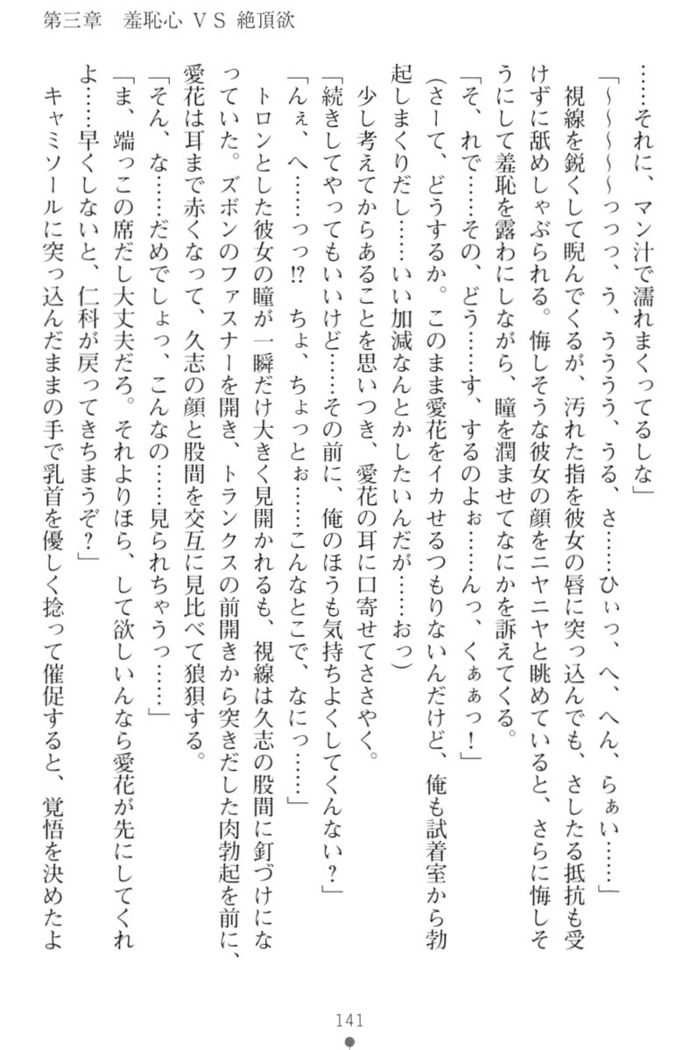 第三章　羞恥心 VS 絶頂欲
……それに、マン汁で濡れまくってるしな」
「～～～～～っっっ、う、うううう、うる、さ……ひぃっ、へ、へん、らぁい……」
　視線を鋭くして睨んでくるが、汚れた指を彼女の唇に突っ込んでも、さしたる抵抗も受
けずに舐めしゃぶられる。悔しそうな彼女の顔をニヤニヤと眺めていると、さらに悔しそ
うにして羞恥を露わにしながら、瞳を潤ませてなにかを訴えてくる。
「そ、れで……その、どう……す、するのよぉ……んっ、くぁぁっ！」
（さーて、どうするか。このまま愛花をイカせるつもりないんだけど、俺も試着室から勃
起しまくりだし……いい加減なんとかしたいんだが……おっ）
　少し考えてからあることを思いつき、愛花の耳に口寄せてささやく。
「続きしてやってもいいけど……その前に、俺のほうも気持ちよくしてくんない？」
「んぇ、へ……っっ!?　ちょ、ちょっとぉ……こんなとこで、なにっ……」
　トロンとした彼女の瞳が一瞬だけ大きく見開かれるも、視線は久志の股間に釘づけにな
っていた。ズボンのファスナーを開き、トランクスの前開きから突きだした肉勃起を前に、
愛花は耳まで赤くなって、久志の顔と股間を交互に見比べて狼狽する。
「そん、な……だめでしょっ、こんなの……見られちゃうっ……」
「ま、端っこの席だし大丈夫だろ。それよりほら、して欲しいんなら愛花が先にしてくれ
よ……早くしないと、仁科が戻ってきちまうぞ？」
　キャミソールに突っ込んだままの手で乳首を優しく捻って催促すると、覚悟を決めたよ
141